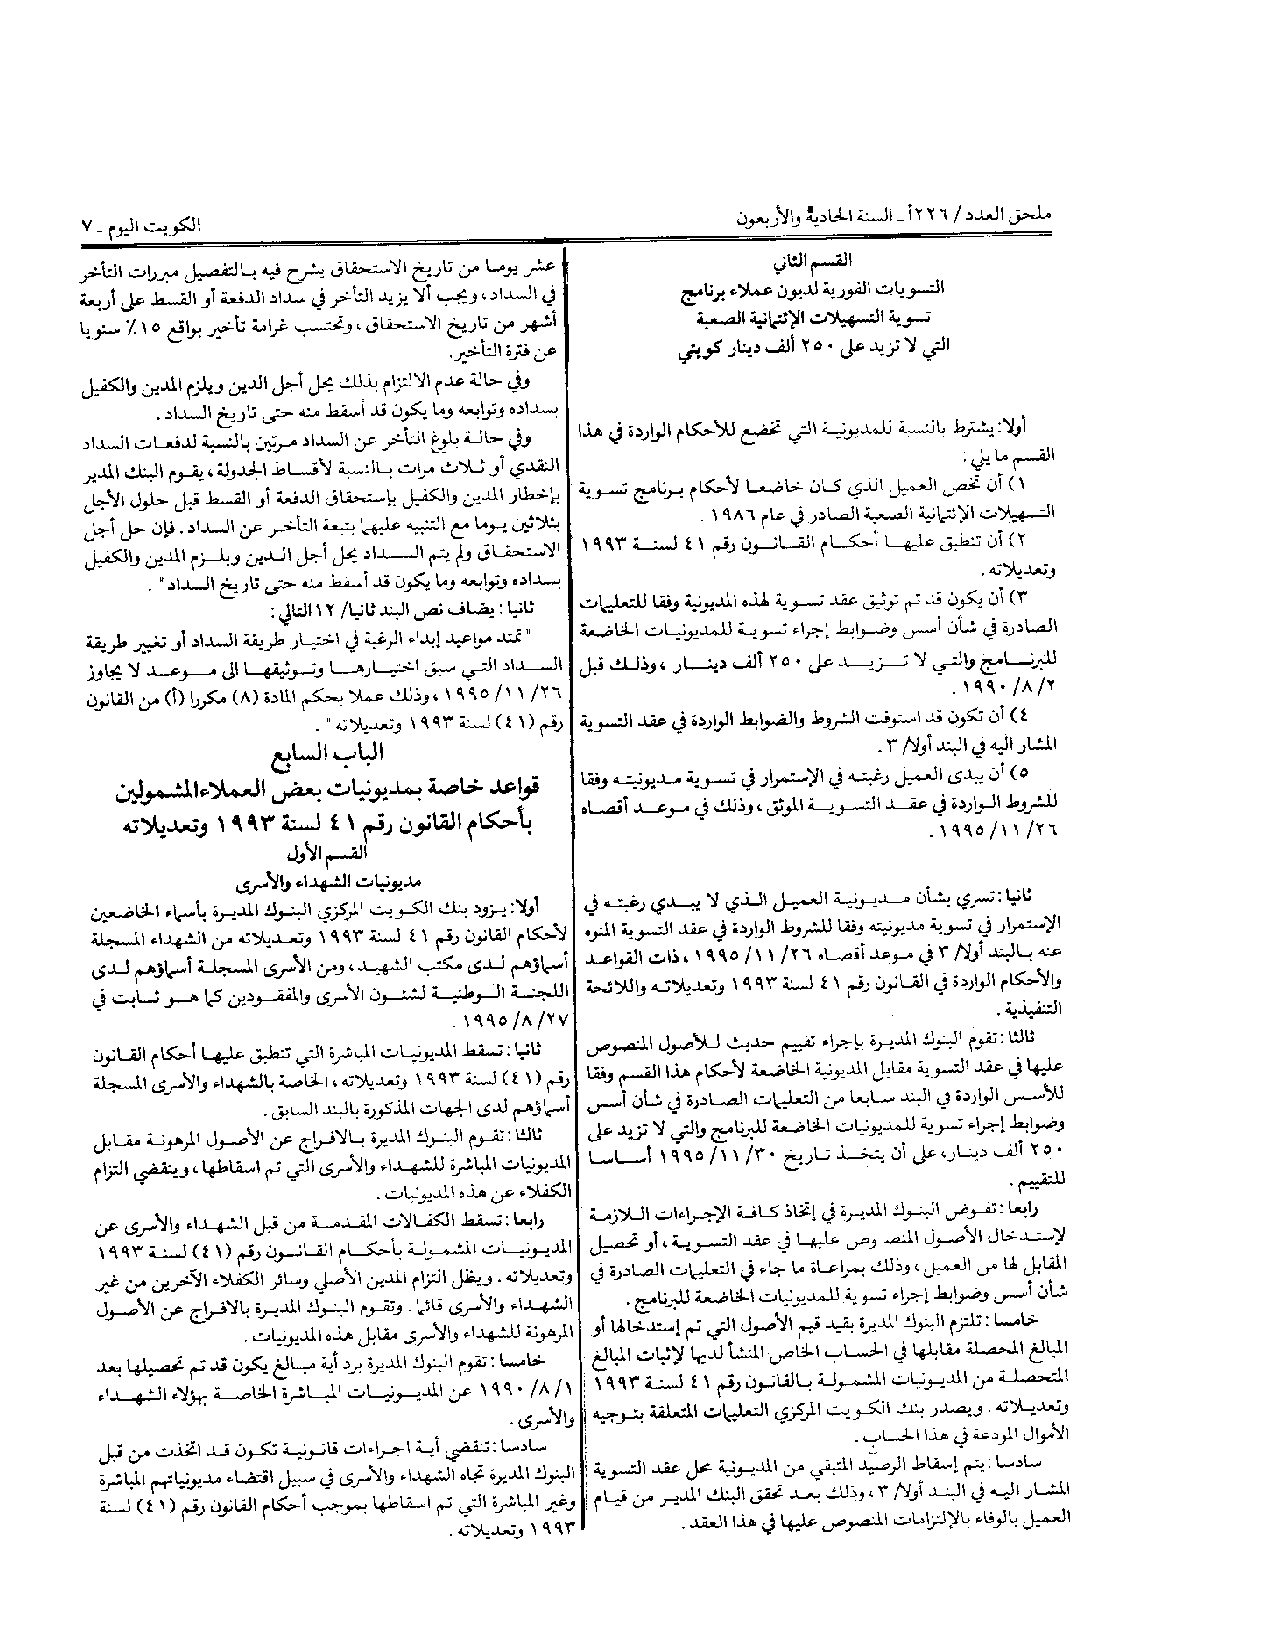 ملحق العدد / ٢٢٦أ ـ السنة الحادية والأربعون
الكويت اليوم ـ ٧
القسم الثاني
التسويات الفورية لديون عملاء برنامج
تسوية التسهيلات الإئتمانية الصعبة
التي لا تزيد على ٢٥٠ ألف دينار كويتي
أولا: يشترط بالنسبة للمديونية التي تخضع للأحكام الواردة في هذا
القسم ما يلي:
١) أن تخص العميل الذي كان خاضعا لأحكام برنامج تسوية
التسهيلات الإئتمانية الصعبة الصادر في عام ١٩٨٦ .
٢) أن تنطبق عليها أحكام القانون رقم ٤١ لسنة ١٩٩٣
وتعديلاته.
٣) أن يكون قد تم توثيق عقد تسوية لهذه المديونية وفقا للتعليمات
الصادرة في شأن أسس وضوابط إجراء تسوية للمديونيات الخاضعة
للبرنامج والتي لا تزيد على ٢٥٠ ألف دينار، وذلك قبل
٢/ ٨/ ١٩٩٠ .
٤) أن تكون قد استوفت الشروط والضوابط الواردة في عقد التسوية
المشار اليه في البند أولا/ ٣ .
٥) أن يبدى العميل رغبته في الإستمرار في تسوية مديونيته وفقا
للشروط الواردة في عقد التسوية الموثق، وذلك في موعد أقصاه
٢٦/ ١١/ ١٩٩٥ .
ثانيا: تسري بشأن مديونية العميل الذي لا يبدي رغبته في
الإستمرار في تسوية مديونيته وفقا للشروط الواردة في عقد التسوية المنوه
عنه بالبند أولا/ ٣ في موعد أقصاه ٢٦/ ١١/ ١٩٩٥ ، ذات القواعد
والأحكام الواردة في القانون رقم ٤١ لسنة ١٩٩٣ وتعديلاته واللائحة
التنفيذية .
ثالثا: تقوم البنوك المديرة بإجراء تقييم حديث للأصول المنصوص
عليها في عقد التسوية مقابل المديونية الخاضعة لأحكام هذا القسم وفقا
للأسس الواردة في البند سابعا من التعليمات الصادرة في شأن أسس
وضوابط إجراء تسوية للمديونيات الخاضعة للبرنامج والتي لا تزيد على
٢٥٠ ألف دينار، على أن يتخذ تاريخ ٣٠/ ١١/ ١٩٩٥ أساسا
للتقييم .
رابعا: تفوض البنوك المديرة في إتخاذ كافة الإجراءات اللازمة
لإستدخال الأصول المنصوص عليها في عقد التسوية، أو تحصيل
المقابل لها من العميل، وذلك بمراعاة ما جاء في التعليمات الصادرة في
شأن أسس وضوابط إجراء تسوية للمديونيات الخاضعة للبرنامج .
خامسا: تلتزم البنوك المديرة بقيد قيم الأصول التي تم إستدخالها أو
المبالغ المحصلة مقابلها في الحساب الخاص المنشأ لديها لاثبات المبالغ
المتحصلة من المديونيات المشمولة بالقانون رقم ٤١ لسنة ١٩٩٣
وتعديلاته . ويصدر بنك الكويت المركزي التعليمات المتعلقة بتوجيه
الأموال المودعة في هذا الحساب .
سادسا: يتم إسقاط الرصيد المتبقي من المديونية محل عقد التسوية
المشار اليه في البند أولا/ ٣ ، وذلك بعد تحقق البنك المدير من قيام
العميل بالوفاء بالإلتزامات المنصوص عليها في هذا العقد .
عشر يوما من تاريخ الاستحقاق يشرح فيه بالتفصيل مبررات التأخر
في السداد، ويجب ألا يزيد التأخر في سداد الدفعة أو القسط على أربعة
أشهر من تاريخ الاستحقاق، وتحتسب غرامة تأخير بواقع ١٥٪ سنويا
عن فترة التأخير.
وفي حالة عدم الالتزام بذلك يحل أجل الدين ويلزم المدين والكفيل
بسداده وتوابعه وما يكون قد أسقط منه حتى تاريخ السداد .
وفي حالة بلوغ التأخر عن السداد مرتين بالنسبة لدفعات السداد
النقدي أو ثلاث مرات بالنسبة لأقساط الجدولة، يقوم البنك المدير
بإخطار المدين والكفيل بإستحقاق الدفعة أو القسط قبل حلول الأجل
بثلاثين يوما مع التنبيه عليهما بتبعة التأخر عن السداد. فإن حل أجل
الاستحقاق ولم يتم السداد يحل أجل الدين ويلزم المدين والكفيل
بسداده وتوابعه وما يكون قد أسقط منه حتى تاريخ السداد" .
ثانيا: يضاف نص البند ثانيا/ ١٢ التالي:
"تمتد مواعيد إبداء الرغبة في اختيار طريقة السداد أو تغيير طريقة
السداد التي سبق اختيارها وتوثيقها الى موعد لا يجاوز
٢٦/ ١١/ ١٩٩٥ ، وذلك عملا بحكم المادة (٨) مكررا (أ) من القانون
رقم (٤١) لسنة ١٩٩٣ وتعديلاته" .
الباب السابع
قواعد خاصة بمديونيات بعض العملاء المشمولين
بأحكام القانون رقم ٤١ لسنة ١٩٩٣ وتعديلاته
القسم الأول
مديونيات الشهداء والأسرى
أولا: يزود بنك الكويت المركزي البنوك المديرة بأسماء الخاضعين
لأحكام القانون رقم ٤١ لسنة ١٩٩٣ وتعديلاته من الشهداء المسجلة
أسماؤهم لدى مكتب الشهيد، ومن الأسرى المسجلة أسماؤهم لدى
اللجنة الوطنية لشئون الأسرى والمفقودين كما هو ثابت في
٢٧/ ٨/ ١٩٩٥ .
ثانيا: تسقط المديونيات المباشرة التي تنطبق عليها أحكام القانون
رقم (٤١) لسنة ١٩٩٣ وتعديلاته، الخاصة بالشهداء والأسرى المسجلة
أسماؤهم لدى الجهات المذكورة بالبند السابق .
ثالثا: تقوم البنوك المديرة بالافراج عن الأصول المرهونة مقابل
المديونيات المباشرة للشهداء والأسرى التي تم اسقاطها، وينقضي التزام
الكفلاء عن هذه المديونيات .
رابعا: تسقط الكفالات المقدمة من قبل الشهداء والأسرى عن
المديونيات المشمولة بأحكام القانون رقم (٤١) لسنة ١٩٩٣
وتعديلاته . ويظل التزام المدين الأصلي وسائر الكفلاء الآخرين من غير
الشهداء والأسرى قائما . وتقوم البنوك المديرة بالافراج عن الأصول
المرهونة للشهداء والأسرى مقابل هذه المديونيات .
خامسا: تقوم البنوك المديرة برد أية مبالغ يكون قد تم تحصيلها بعد
١/ ٨/ ١٩٩٠ عن المديونيات المباشرة الخاصة بهؤلاء الشهداء
والأسرى .
سادسا: تنقضي أية اجراءات قانونية تكون قد اتخذت من قبل
البنوك المديرة تجاه الشهداء والأسرى في سبيل اقتضاء مديونياتهم المباشرة
وغير المباشرة التي تم اسقاطها بموجب أحكام القانون رقم (٤١) لسنة
١٩٩٣ وتعديلاته .